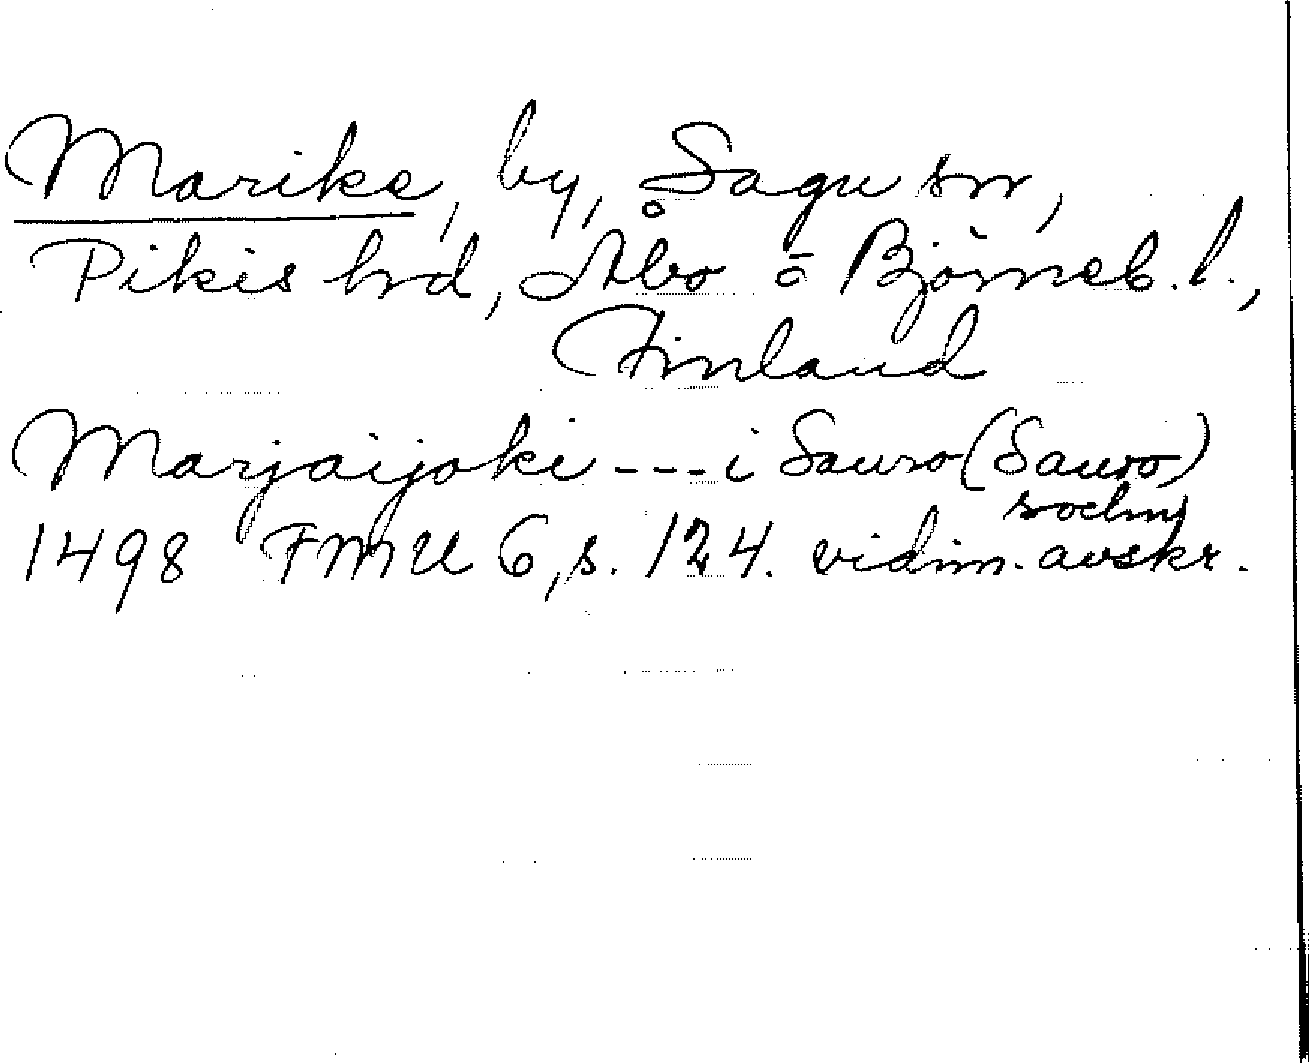 Marike, by, Sagu sn,
Pikis hrd, Åbo o Björneb. l.,
Finland
Marjaijoki --- i Sauro (Sauro)
sochn
1498 FMU 6, s. 124. vidim. avskr.